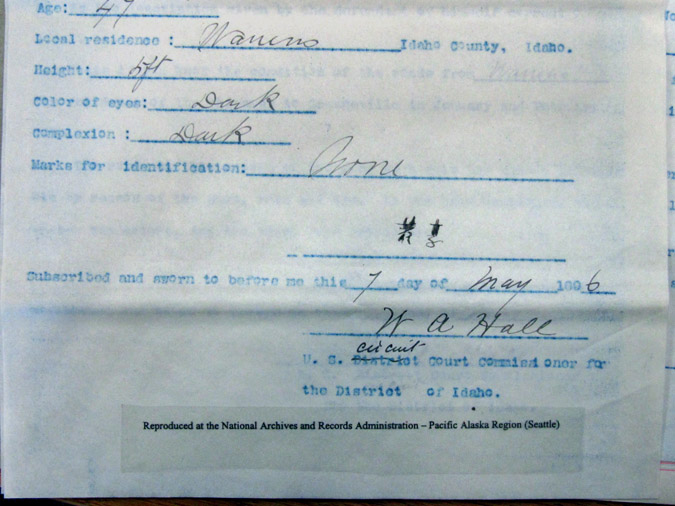 Age: 47
Local residence : Warrens Idaho County, Idaho.
Height: 5ft
Color of eyes: Dark
Complexion : Dark
Marks for identification: None
Subscribed and sworn to before me this 7 day of May 1896
W A Hall
circuit
U. S. District Court Commissioner for
the District of Idaho.
Reproduced at the National Archives and Records Administration – Pacific Alaska Region (Seattle)